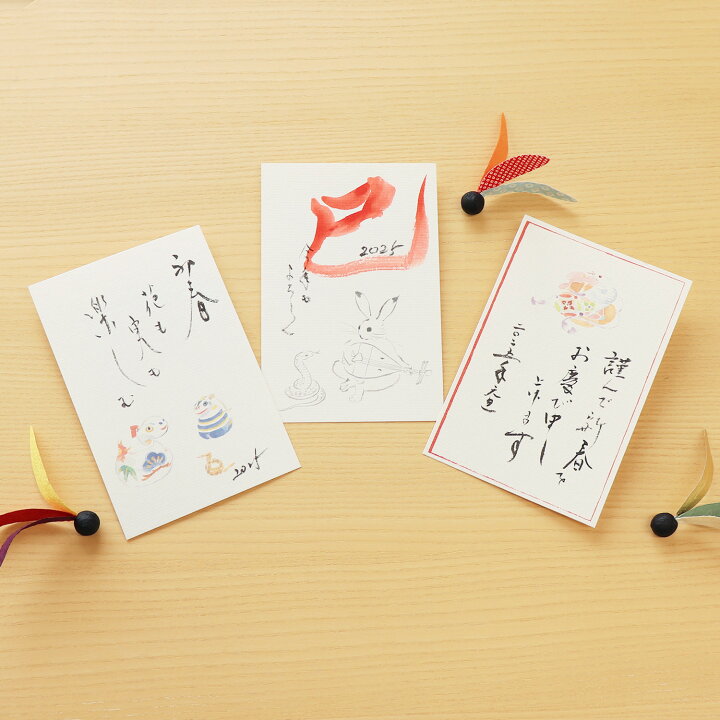 初春
花も実も
楽しむ
2025
巳
2025
今年も
よろしく
謹んで新春の
お慶び申し
上げます
二〇二五年